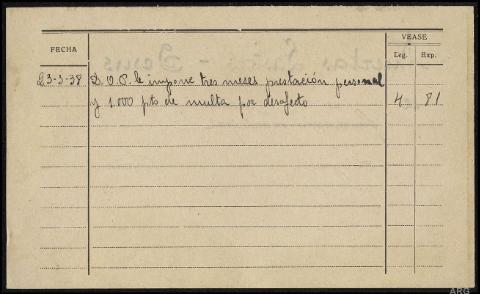 VEASE
FECHA
Leg. Exp.
23-3-38 D.O.P. le impone tres meses prestación personal
y 1.000 pts de multa por desafecto 4 81
ARG